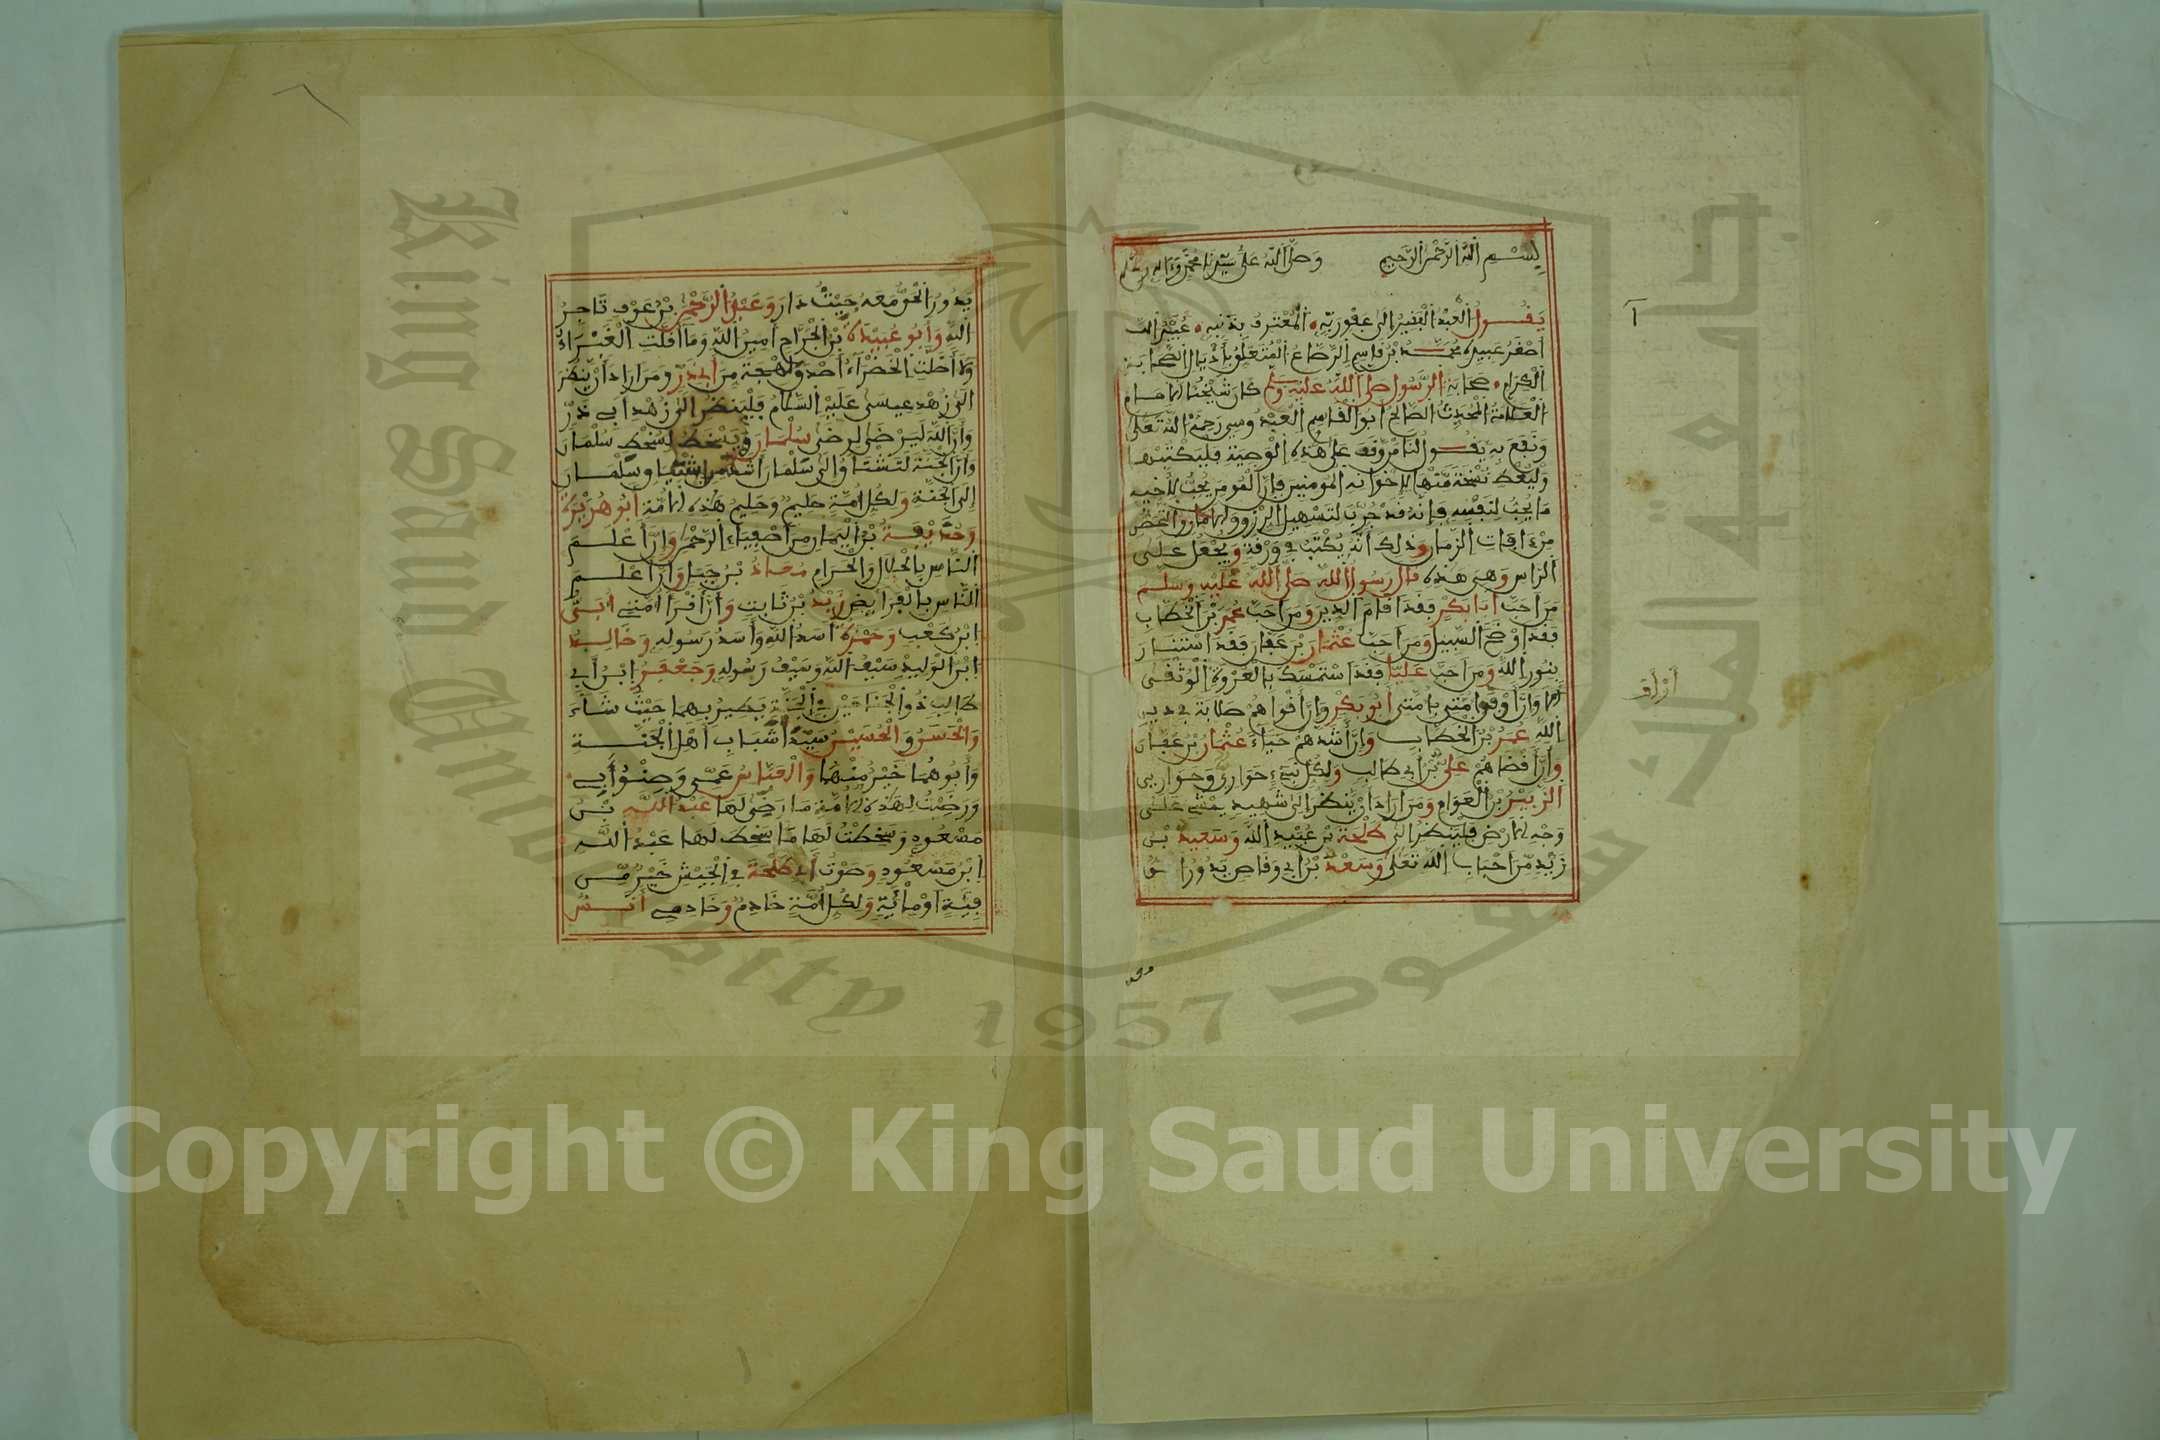 بسم الله الرحمن الرحيم وصلى الله على سيدنا محمد وءاله وسلم
يقول العبد الفقير الى عفو ربه المعترف بذنبه عبيد الله
اصغر عبيده محمد بن قاسم الرصاع المتعلق باذيال الصحابة
الكرام صحابة الرسول صلى الله عليه وسلم كان شيخنا الامام
العلامة المحدث الصالح ابو القاسم العبدوسي رحمه الله تعالى
ونفع به يقول لنا من وقف على هذه الوصية فليكتبها
وليعط نسخة منها لاخوانه المومنين فان المومن يحب لاخيه
ما يحب لنفسه فإنه قد جرب لتسهيل الرزق والامان والتحصن
من ءافات الزمان وذلك أنه يكتب في ورقة ويجعل على
الراس وهي هذه قال رسول الله صلى الله عليه وسلم
من احب أبا بكر فقد اقام الدين ومن احب عمر بن الخطاب
فقد اوضح السبيل ومن احب عثمان بن عفان فقد استنار
بنور الله ومن احب عليا فقد استمسك بالعروة الوثقى
الا وان أرأف امتي بامتي أبو بكر وإن أقواهم صلابة في دين
الله عمر بن الخطاب وإن أشدهم حياء عثمان بن عفان
وإن أقضاهم علي بن أبي طالب ولكل نبيء حواري وحواريي
الزبير بن العوام ومن اراد أن ينظر الى شهيد يمشي على
وجه الارض فلينظر الى طلحة بن عبيد الله وسعيد بن
زيد من احباب الله تعلى وسعد بن ابي وقاص يدور الحق
آ
أوراق
يدور الحق معه حيث دار وعبد الرحمن بن عوف تاجر
الله وأبو عبيدة بن الجراح أمين الله وما أقلت الغبراء
ولا أظلت الخضراء أصدق لهجة من أبي ذر ومن اراد أن ينظر
الى زهد عيسى عليه السلام فلينظر الى زهد ابي ذر
وأن الله ليرضى لرضى سلمان ويسخط لسخط سلمان
وأن الجنة لتشتاق الى سلمان أشد من اشتياق سلمان
إلى الجنة ولكل امة حليم وحليم هذه الامة أبو هريرة
وحذيفة بن اليمان من أصفياء الرحمن وإن أعلم
الناس بالحلال والحرام معاذ بن جبل وان أعلم
الناس بالفرايض زيد بن ثابت وأن أقرأ امتي أبي
ابن كعب وحمزة أسد الله وأسد رسوله وخالد
ابن الوليد سيف الله وسيف رسوله وجعفر ابن أبي
طالب ذو الجناحين في الجنة يطير بهما حيث شاء
والحسن والحسين سيدا شباب أهل الجنة
وأبوهما خير منهما والعباس عمي وصنو أبي
ورضيت لهذه الامة ما رضي لها عبد الله بن
مسعود وسخطت لها ما سخط لها عبد الله
ابن مسعود وصوت أبي طلحة في الجيش خير من
فئة أو مائة ولكل أمة خادم وخادمي أنس
King Saud University 1957
جامعة الملك سعود
Copyright © King Saud University